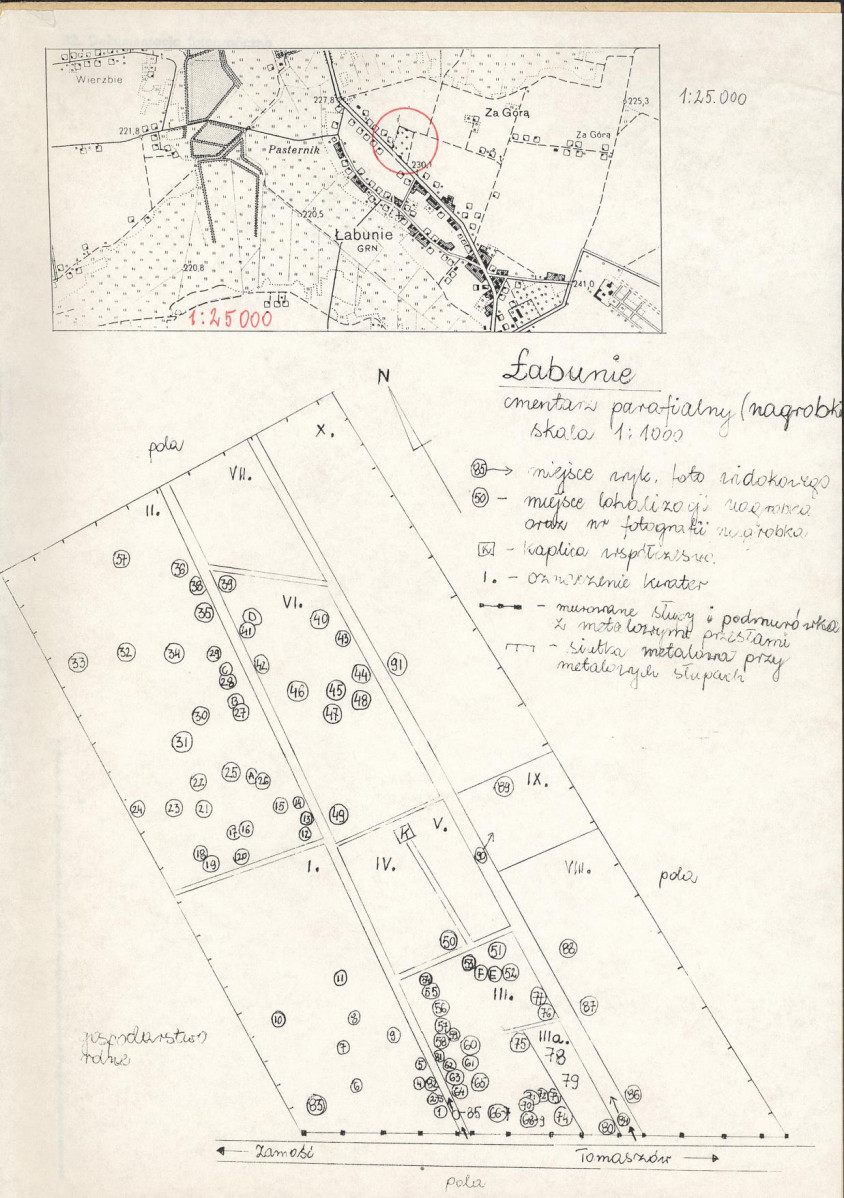 Wierzbie
227,8
Za Górą
225,3
1:25.000
221,8
Pasternik
Za Górą
230,1
220,5
Łabunie
GRN
220,8
241,0
1:25000
Łabunie
cmentarz parafialny (nagrobki
skala 1:1000
N
X.
pola
VII.
II.
85 → miejsce wyk. foto widokowego
50 - miejsce lokalizacji nagrobka
oraz nr fotografii nagrobka
K - kaplica współczesna.
I. - oznaczenie kwater
- murowane słupy i podmurówka
z metalowymi przęsłami
- siatka metalowa przy
metalowych słupach
57
36
38 39
VI.
35 D 40
41 43
33 32 34 29 42 91
C 44
28 46 45
B 48
30 27 47
31
25 A 26
22 89 IX.
24 23 21 15 14 49
13
17 16 12 V.
K
18 19 20 I. IV. 90
VIII.
pola
50 51 88
53 F E 52
11 54 III.
55 77 87
56 76
10 8
57 IIIa.
9 58 59 60 75 78
gospodarstwo
rolne
7
5 81 62 61 79
6 4 82 63 65
64 86
83 2 3 71 72 73
70
1 85 66-7 68-9 74 80 84
Zamość
Tomaszów
pola